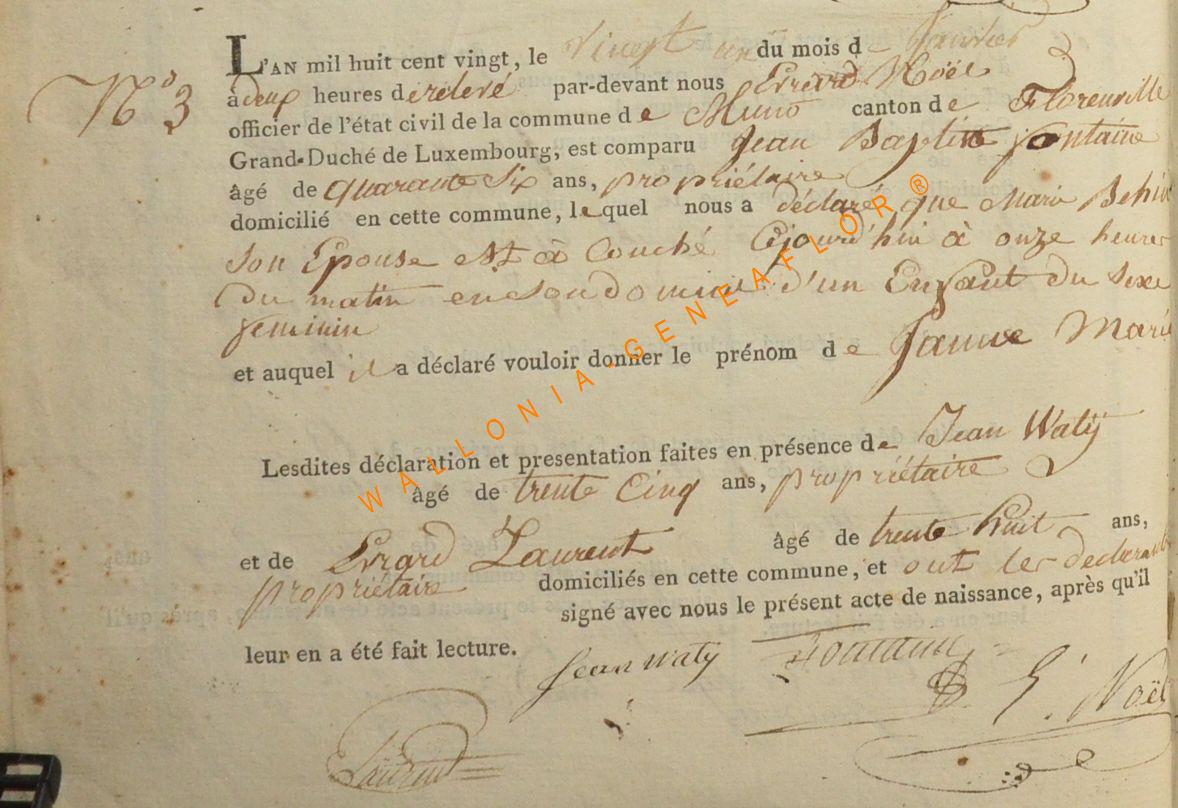 L'AN mil huit cent vingt, le vingt un du mois de Janvier
N° 3
à deux heures de rélevé par-devant nous Evrard Noël
officier de l'état civil de la commune de Muno canton de Florenville
Grand-Duché de Luxembourg, est comparu Jean Baptiste fontaine
âgé de quarante Six ans, propriétaire
domicilié en cette commune, lequel nous a déclaré que Marie
Son Epouse est à couché cejourd'hui à onze heures
Du matin en son domicile d'un Enfant du Sexe
feminin
et auquel il a déclaré vouloir donner le prénom de Janne Marie
Lesdites déclaration et presentation faites en présence de Jean Watÿ
âgé de trente Cinq ans, propriétaire
et de Evrard Laurent âgé de trente huit ans,
propriétaire domiciliés en cette commune, et ont les declarants
signé avec nous le présent acte de naissance, après qu'il
leur en a été fait lecture.
Jean watÿ fontaine
E. Noël
Laurent
WALLONIA-GENEAFLOR®